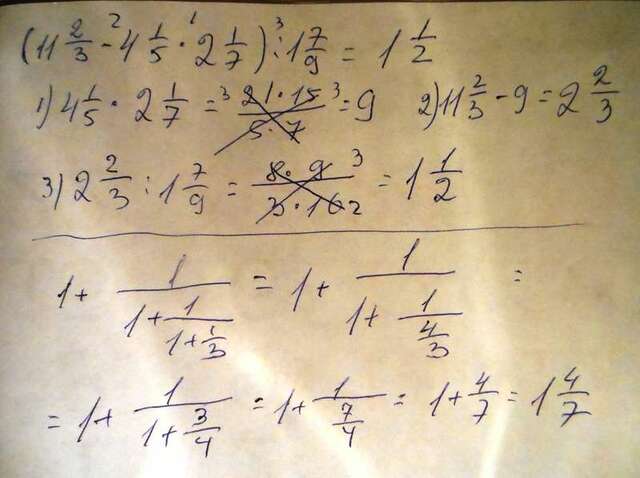 (11 2/3 - 4 1/5 · 2 1/7) : 1 7/9 = 1 1/2
1) 4 1/5 · 2 1/7 = (21 · 15)/(5 · 7) = 9 2) 11 2/3 - 9 = 2 2/3
3) 2 2/3 : 1 7/9 = (8 · 9)/(3 · 16) = 1 1/2
1 + 1/(1 + 1/(1 + 1/3)) = 1 + 1/(1 + 1/(4/3)) =
= 1 + 1/(1 + 3/4) = 1 + 1/(7/4) = 1 + 4/7 = 1 4/7